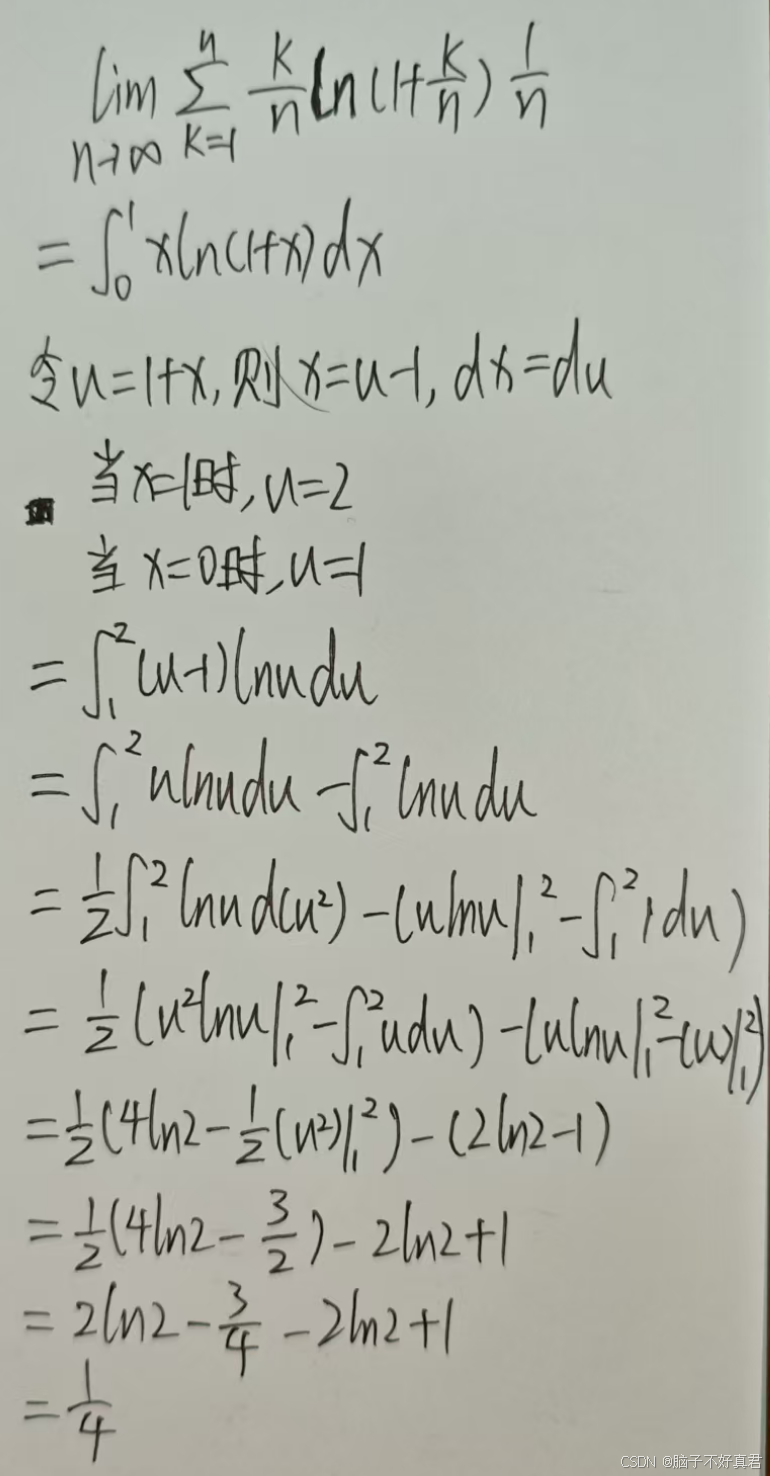 lim_{n→∞} ∑_{k=1}^{n} \frac{k}{n} ln(1+\frac{k}{n}) \frac{1}{n}
= ∫_0^1 xln(1+x)dx
令u=1+x,则x=u-1,dx=du
当x=1时,u=2
当x=0时,u=1
= ∫_1^2 (u-1)lnudu
= ∫_1^2 ulnudu - ∫_1^2 lnudu
= \frac{1}{2}∫_1^2 lnud(u²) - (ulnu|_1^2 - ∫_1^2 1du)
= \frac{1}{2}(u²lnu|_1^2 - ∫_1^2 udu) - (ulnu|_1^2 - (u)|_1^2)
= \frac{1}{2}(4ln2 - \frac{1}{2}(u²)|_1^2) - (2ln2-1)
= \frac{1}{2}(4ln2 - \frac{3}{2}) - 2ln2+1
= 2ln2 - \frac{3}{4} - 2ln2+1
= \frac{1}{4}
CSDN @脑子不好真君